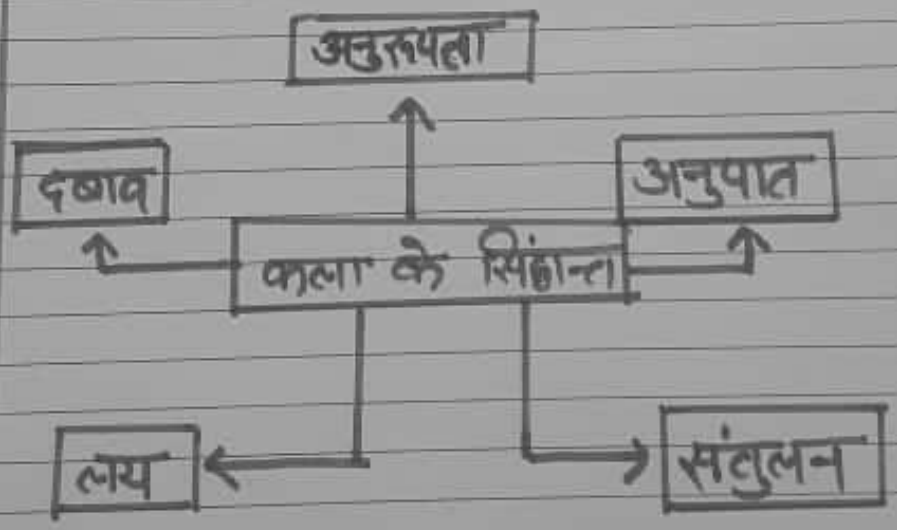 अनुरूपता
दबाव
अनुपात
कला के सिंद्धान्त
लय
संतुलन